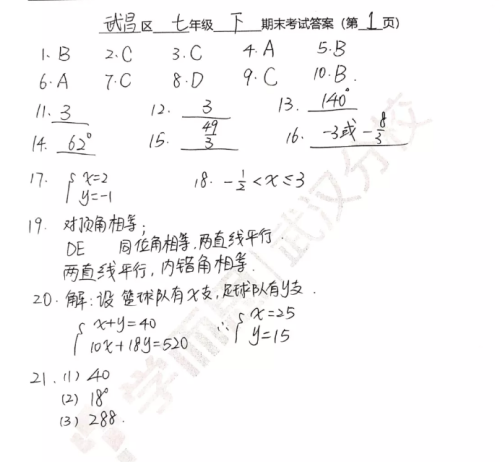 武昌区 七年级 下 期末考试答案（第 1 页）
1. B 2. C 3. C 4. A 5. B
6. A 7. C 8. D 9. C 10. B.
11. 3 12. 3 13. 140°
14. 62° 15. 49/3 16. -3或-8/3
17. { x=2 18. -1/2 < x ≤ 3
y=-1
19. 对顶角相等;
DE 同位角相等.两直线平行.
两直线平行,内错角相等.
20. 解:设篮球队有x支,足球队有y支.
{ x+y=40 ∴ { x=25
10x+18y=520 y=15
21. (1) 40
(2) 18°
(3) 288.
学而思|武汉分校